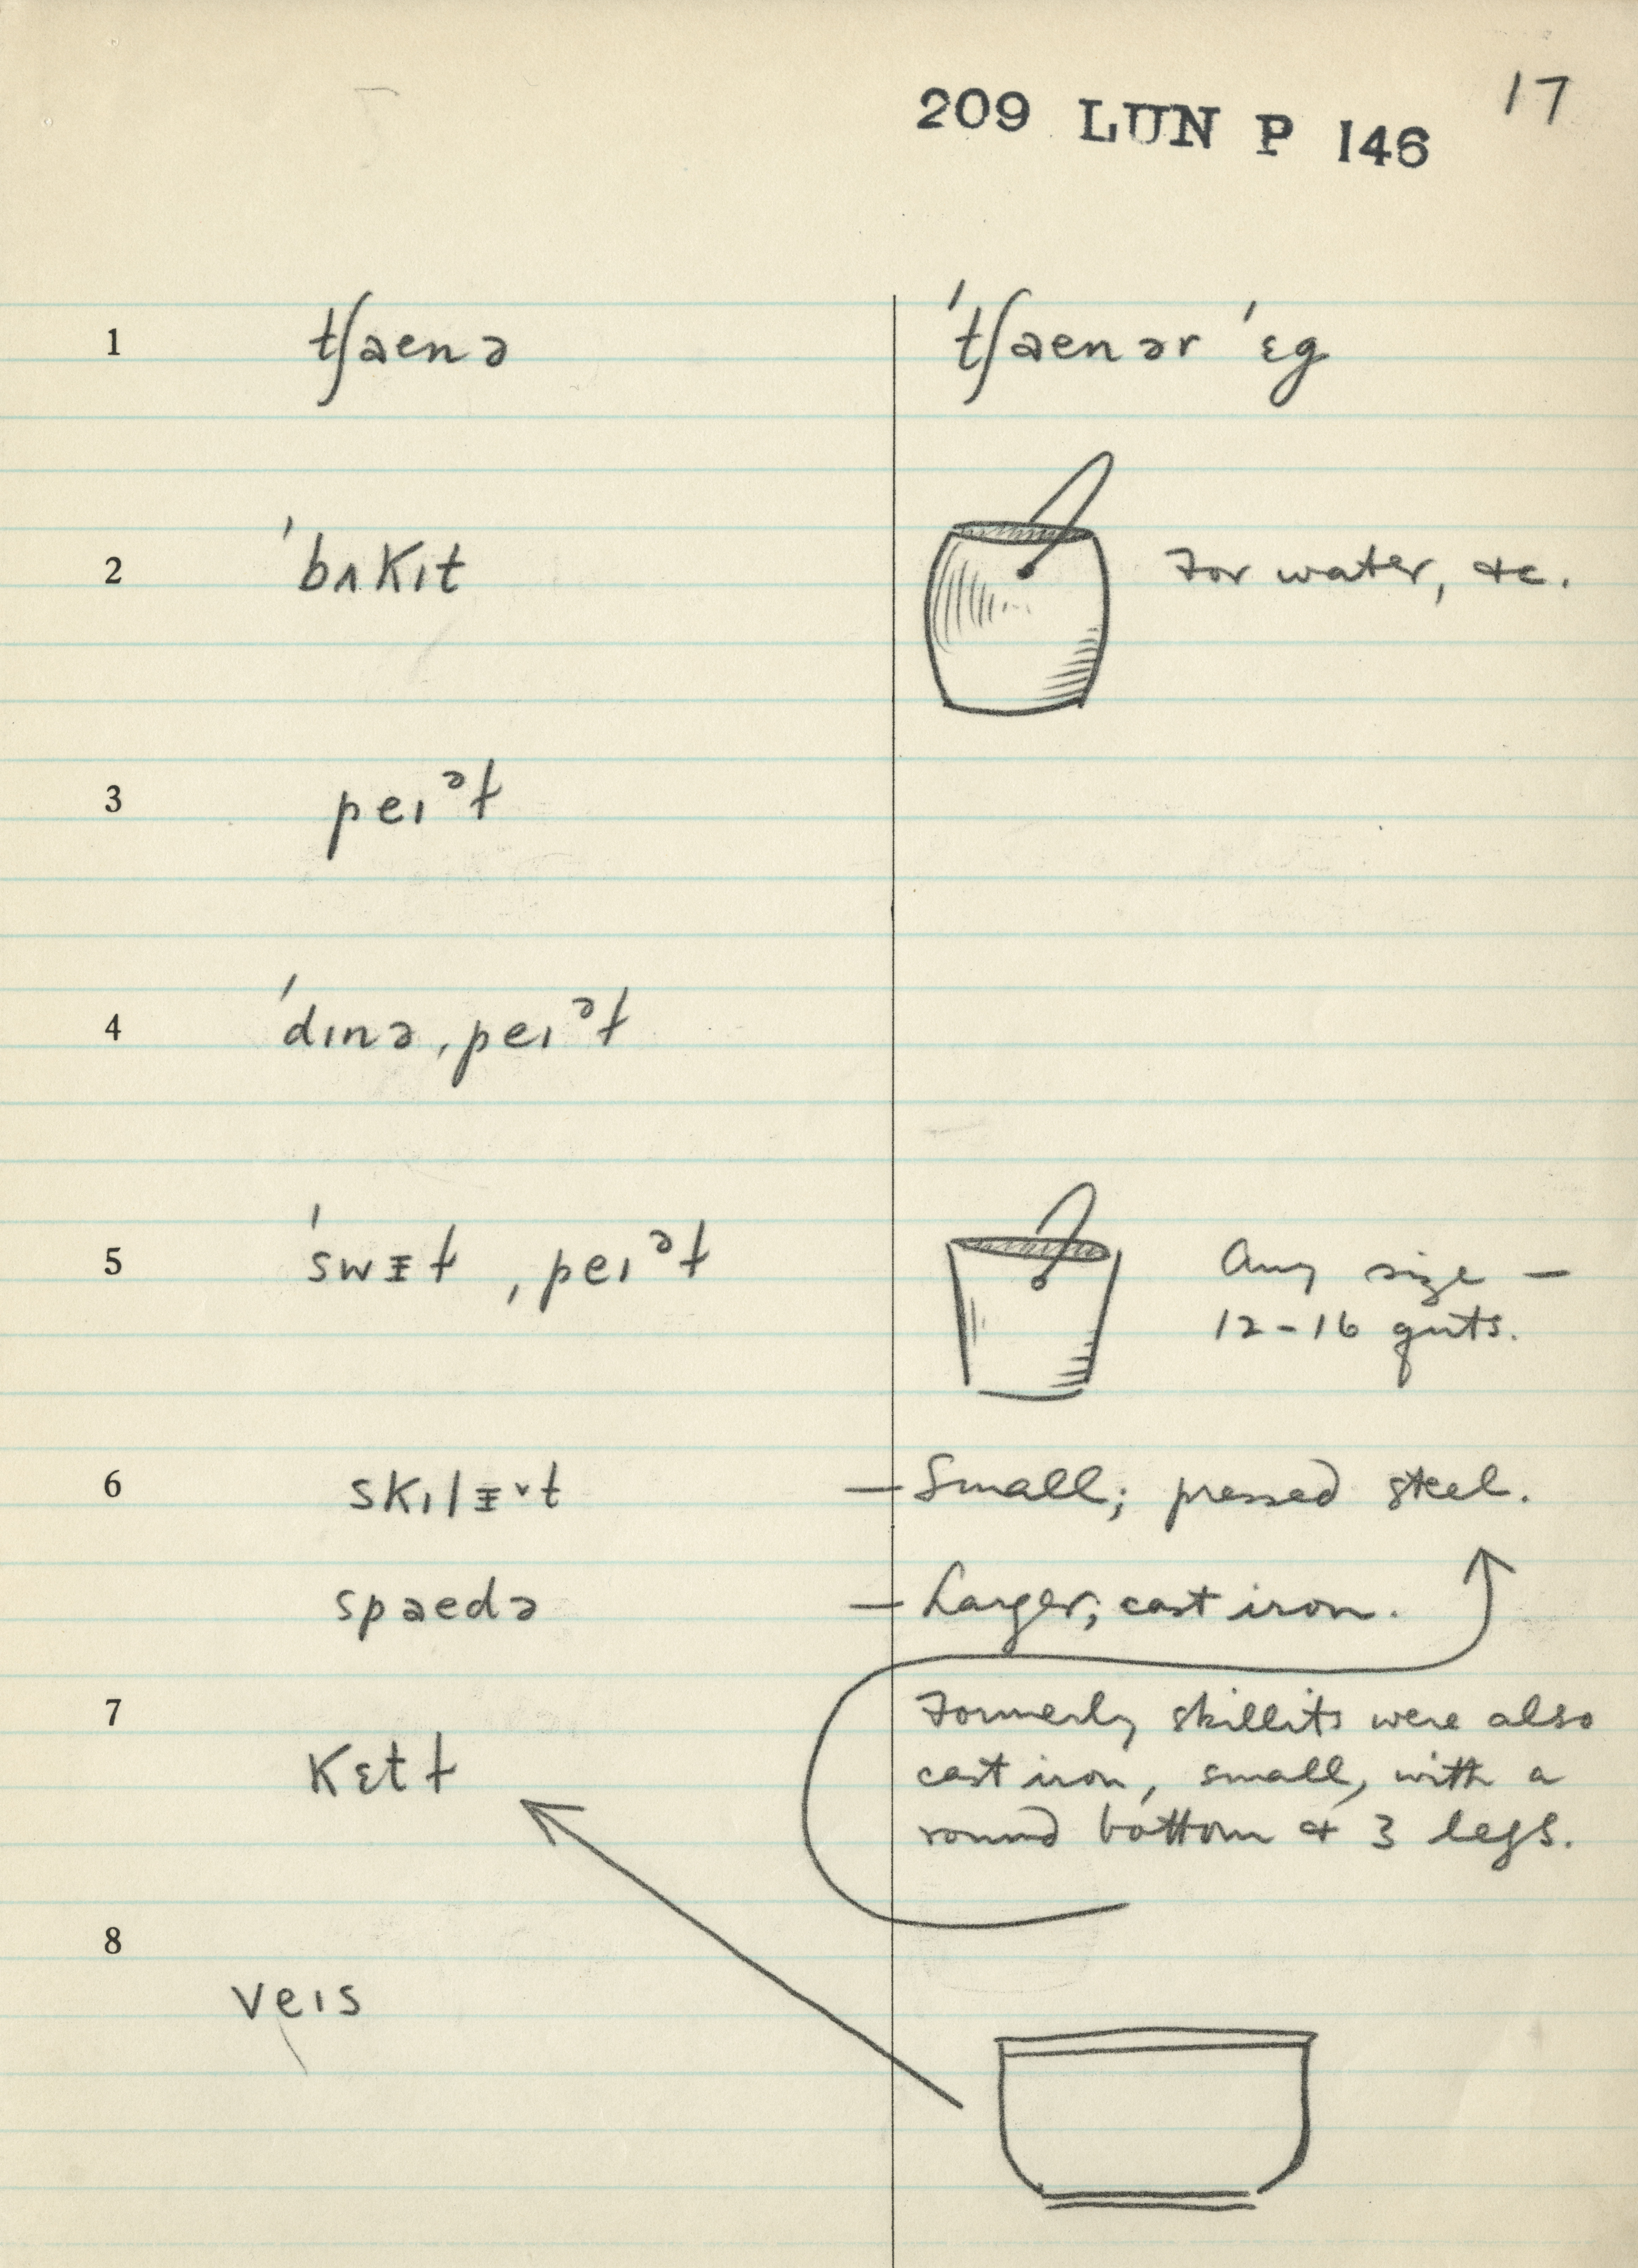 17
209 LUN P 146
1 tʃaenə ˈtʃaenər ˈɛg
2 ˈbʌkɪt For water, &c.
3 peɪᵊɫ
4 ˈdɪnəˌpeɪᵊɫ
5 ˈswᵻɫ ˌpeɪᵊɫ Any size —
12-16 qrts.
6 skɪlᵻ˅t — Small; pressed steel.
spaedə — Larger; cast iron.
7 Formerly skillits were also
kɛtɫ cast iron, small, with a
round bottom & 3 legs.
8
veɪs